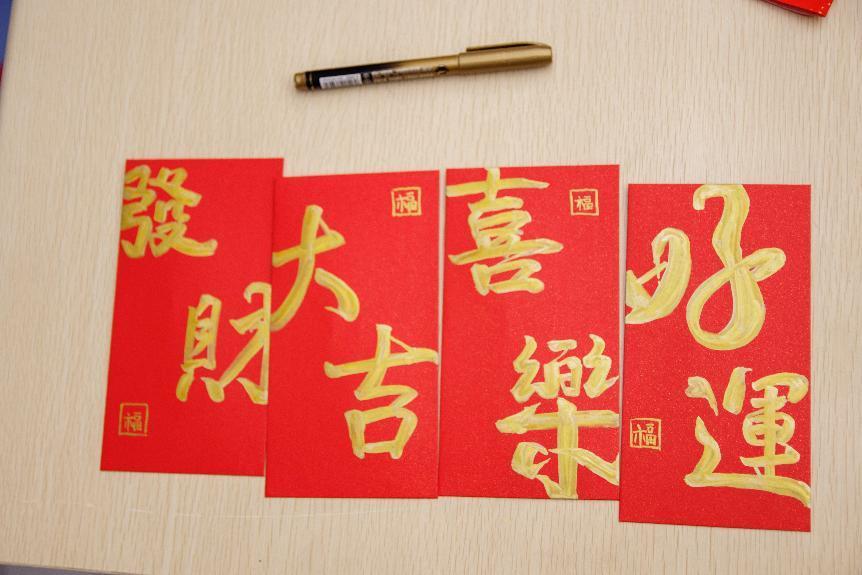 發財
福
大吉
福
喜樂
福
好運
福